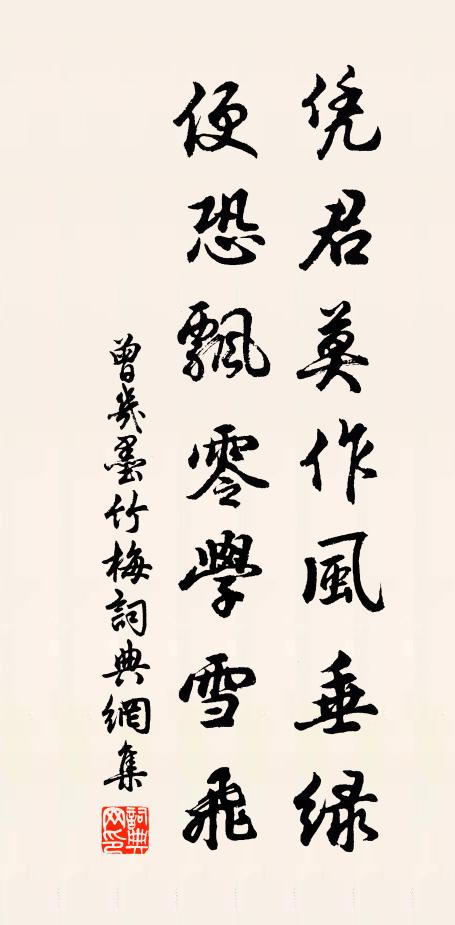 凭君莫作風垂緑
便恐飄零學雪飛
曾幾墨竹梅詞典網集
詞典网印